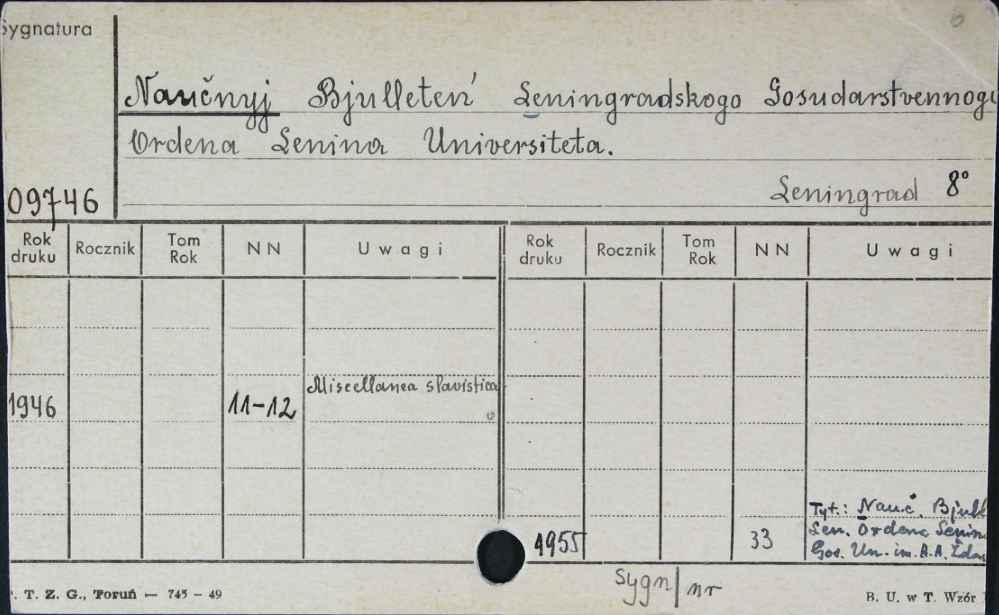 Sygnatura
Naučnyj Bjulleteń Leningradskogo Gosudarstvennogo
Ordena Lenina Universiteta.
Leningrad 8°
09746
Rok druku Rocznik Tom Rok NN Uwagi Rok druku Rocznik Tom Rok NN Uwagi
Miscellanea slavistica
1946 11-12
Tyt.: Nauč. Bjull
Len. Ordena Lenina
1955 33 Gos. Un. im. A.A. Ždan
Sygn/nr
T. Z. G., Toruń — 745 - 49 B. U. w T. Wzór